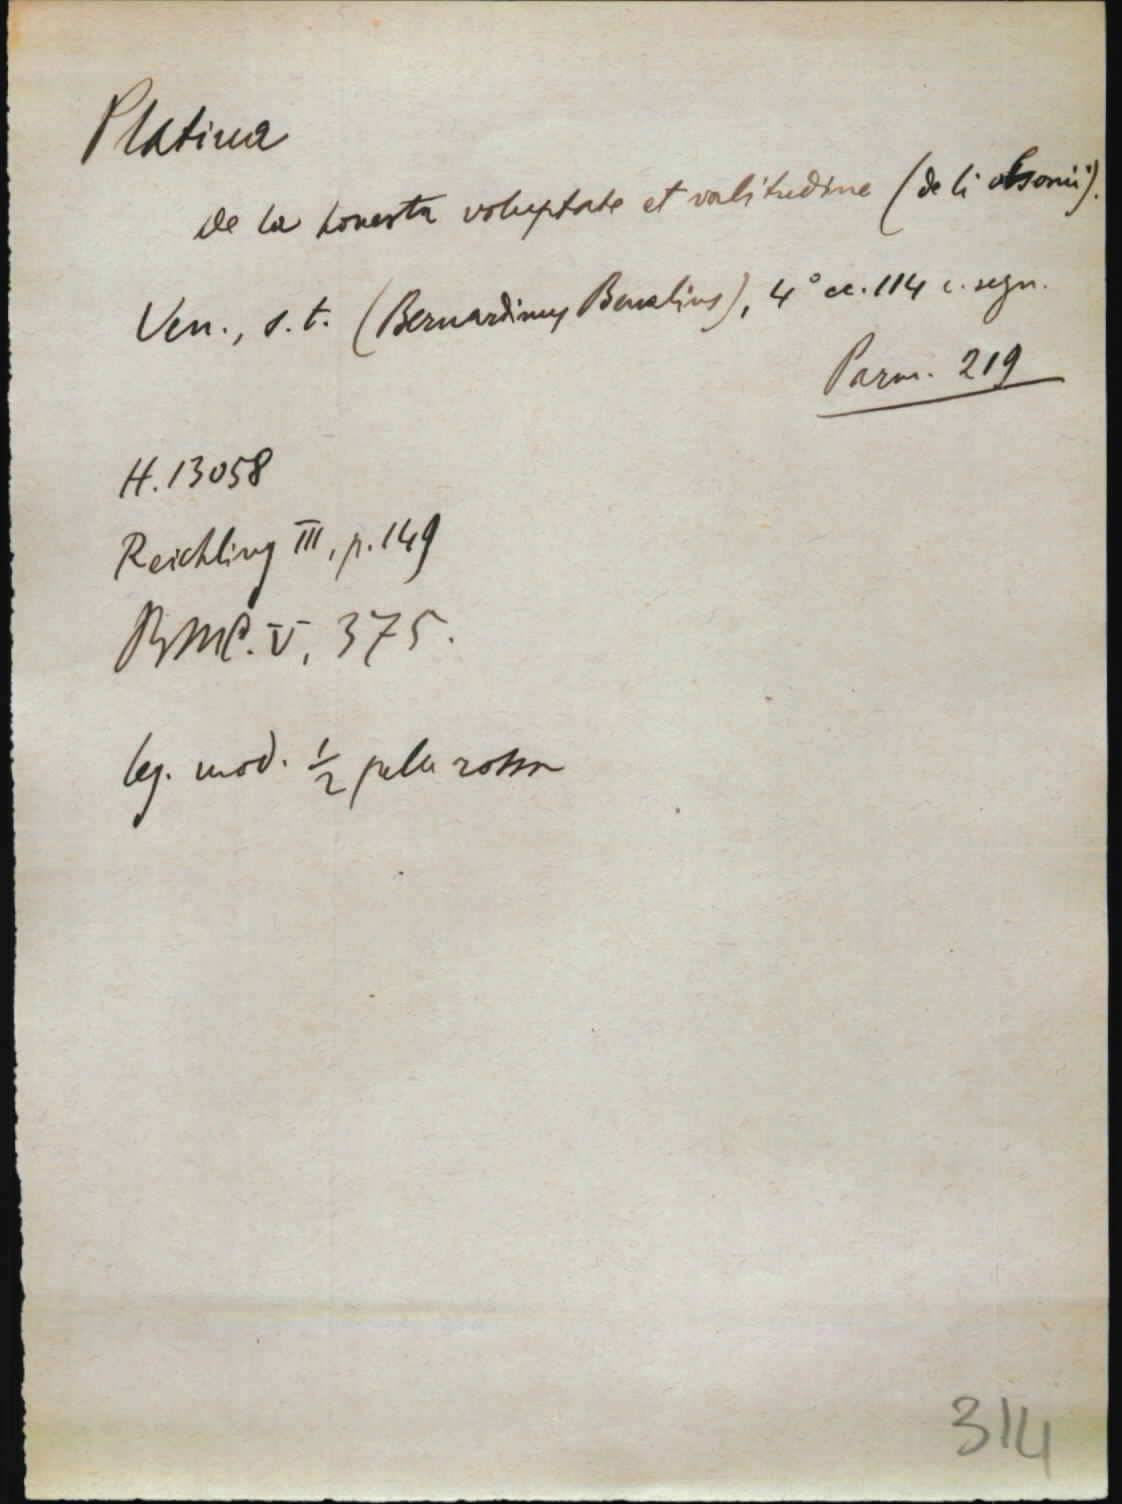 Platina
De la honesta voluptate et valitudine (de li obsonii).
Ven., s. t. (Bernardinus Benalius), 4° cc. 114 c. segn.
Parm. 219
H. 13058
Reichling III, p. 149
BMC. V, 375.
leg. mod. ½ pelle rossa
314